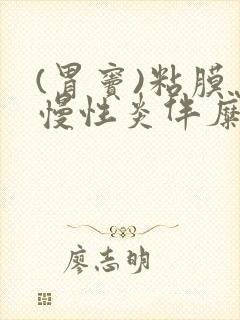 (胃窦)粘膜
慢性炎伴糜
廖志明